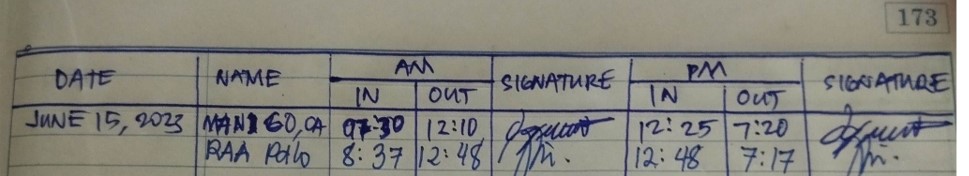 173
DATE NAME AM SIGNATURE PM SIGNATURE
IN OUT IN OUT
JUNE 15, 2023 MANIGO, CA 07:30 12:10 12:25 7:20
RAA Polo 8:37 12:48 12:48 7:17